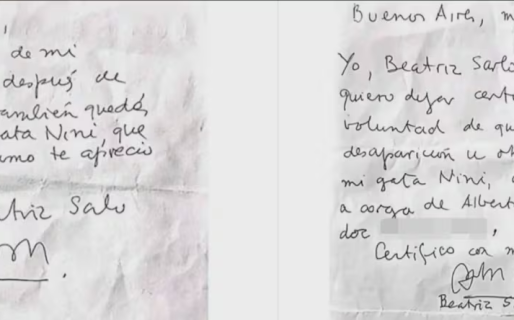 de mi
después de
también quedó,
ata Nini, que
te aprecio
triz Salo
Buenos Aires, m
Yo, Beatriz Sarl
quiero dejar
voluntad de qu
desaparición u
mi gata Nini,
a cargo de Albert
doc ,
Certifico con m
Beatriz S